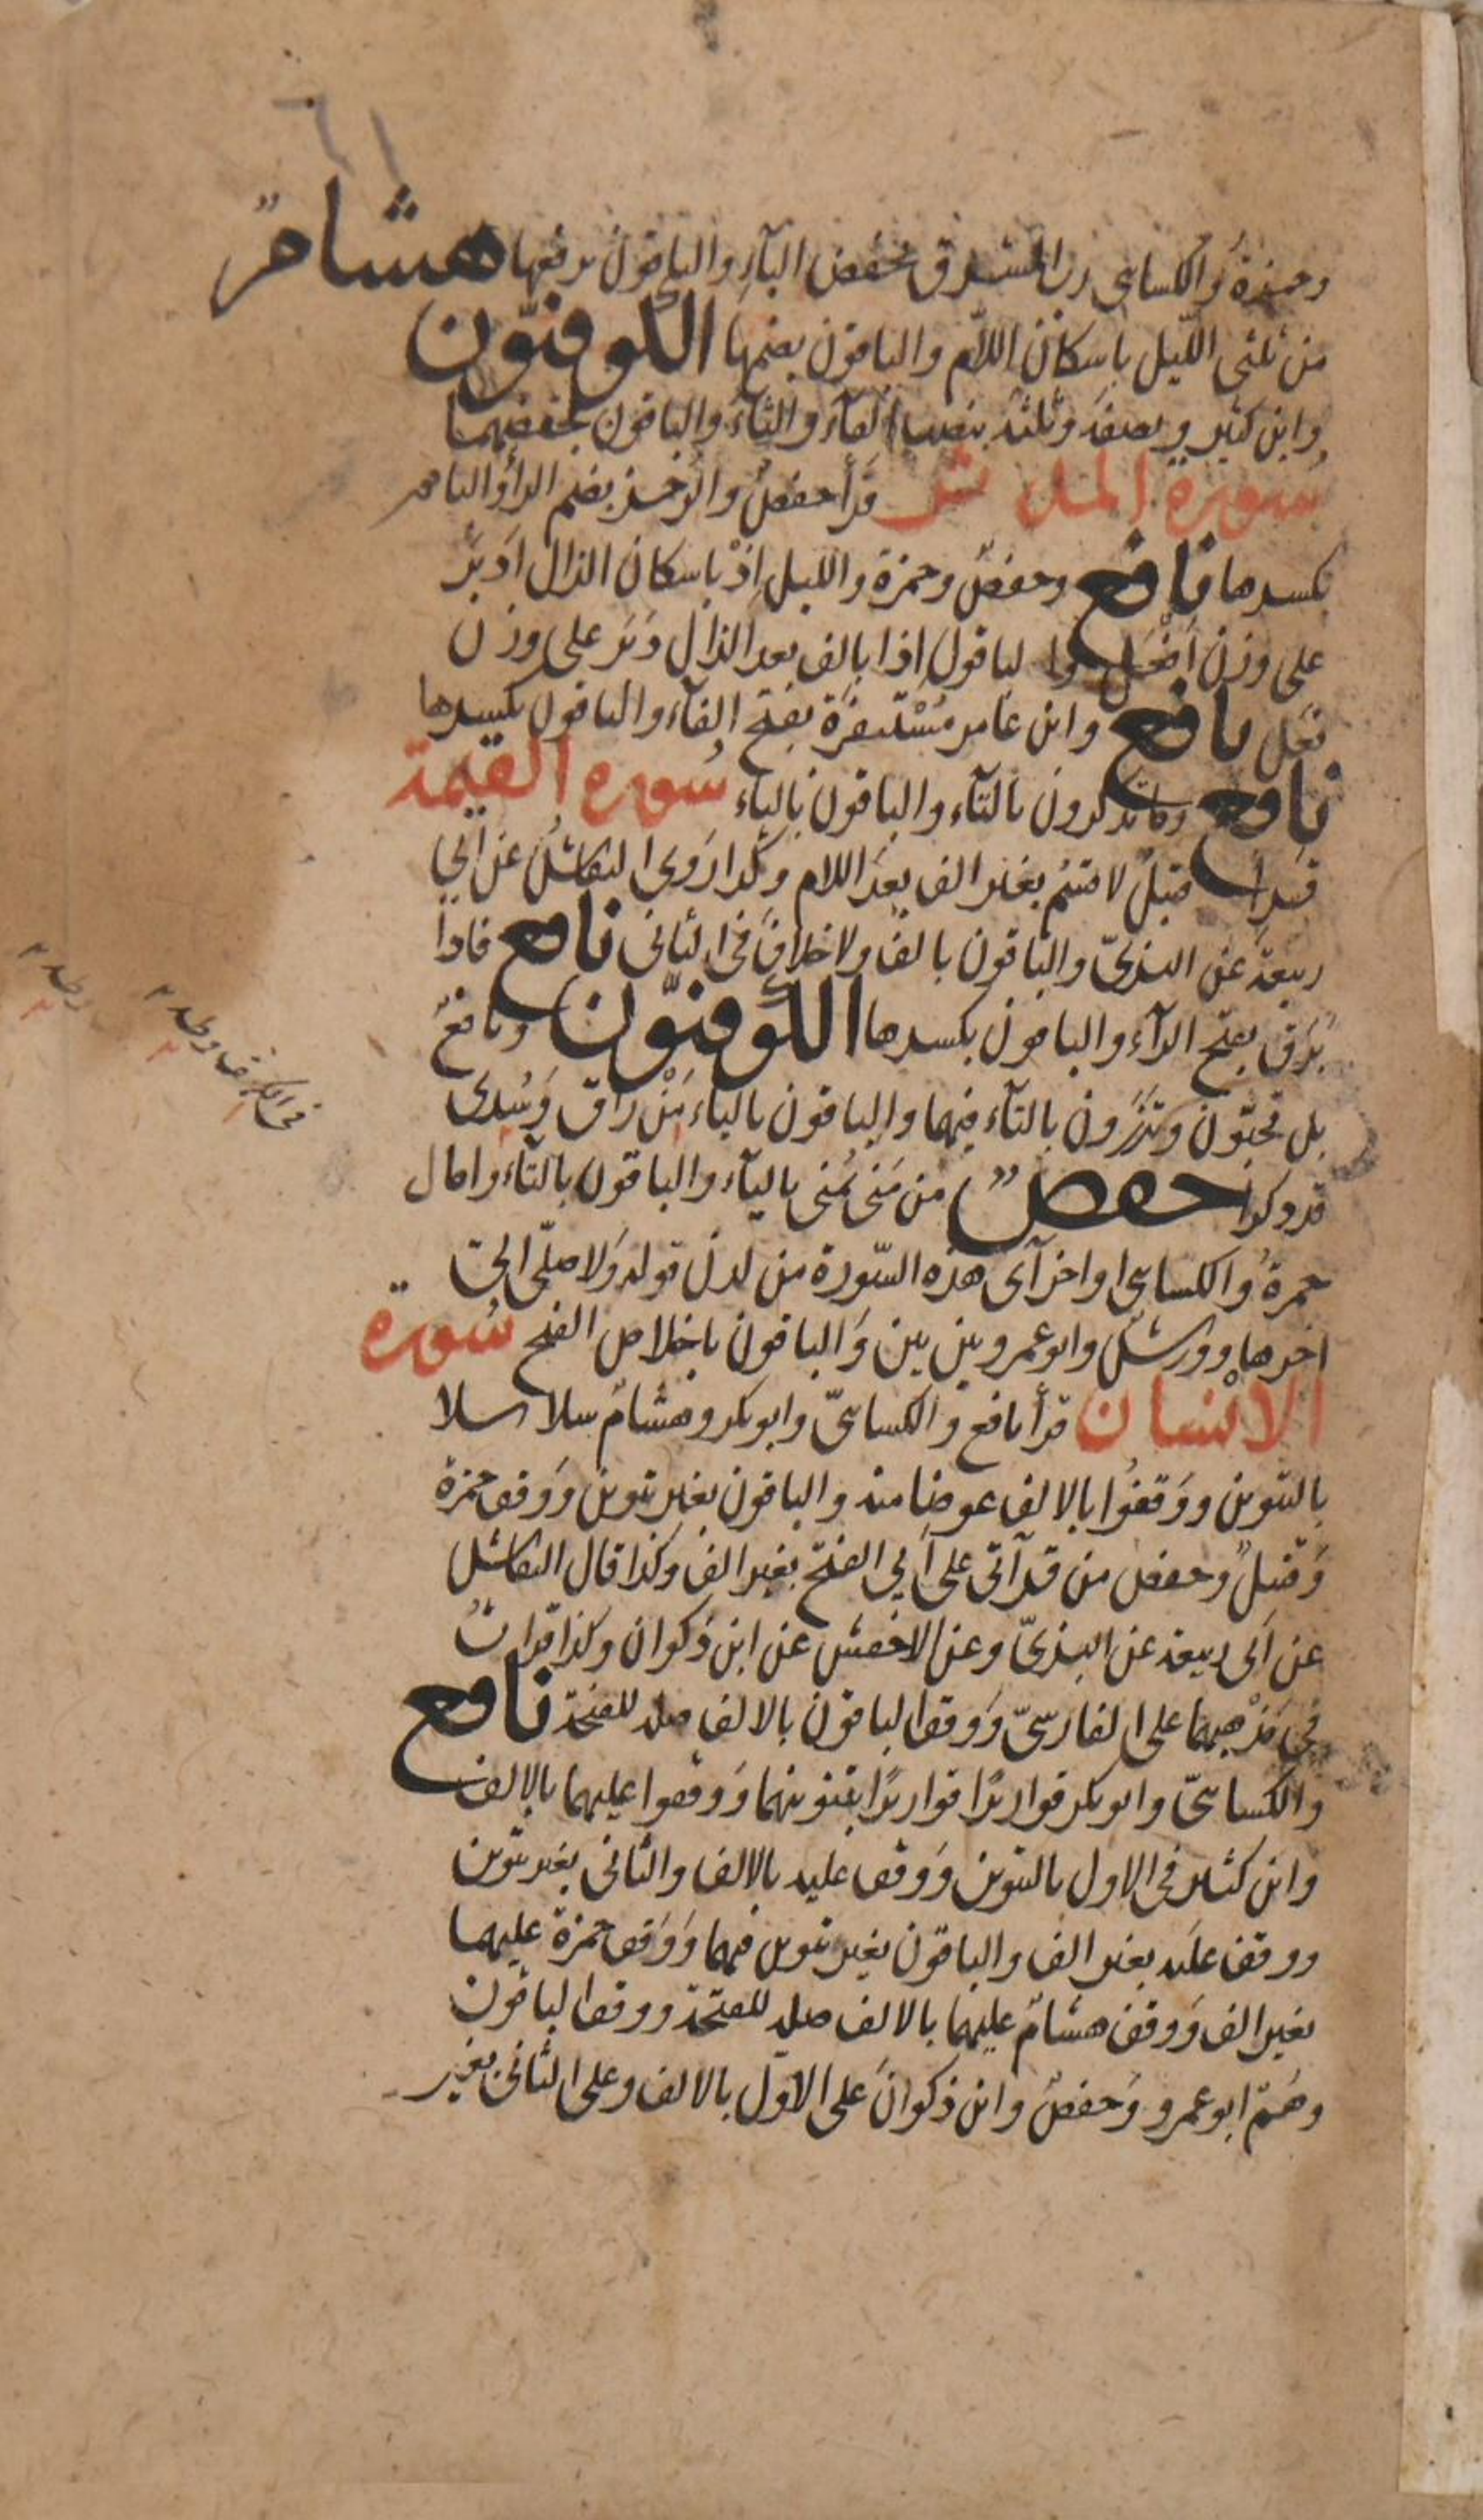 وحمزةُ والكسائى رب المشرق بخفض البآءِ والباقون برفعها هشامٌ
من ثلثى اللّيل باسكان اللاّم والباقون بضمها الكوفيّون
وابن كثير ونصفَه وثلثَه بنصب الفآء والثآء والباقون بخفضهما
سورة المدثر قرأ حفصٌ والرُجز بضم الرآء والباقون
بكسرها نافع وحفصٌ وحمزة والليل اِذْ باسكان الذال ادَبَرَ
على وزن اَفْعَل والباقون اذا بالف بعد الذال دَبَرَ على وزن
فعَل نافع وابن عامر مُسْتنفَرة بفتح الفآء والباقون بكسرها
نافع وما تذكرون بالتآء والباقون بالياء سُورة القيمة
قرا قنبلٌ لا قسم بغير الف بعدَ اللام وكذا رَوى النقاشُ عن ابى
ربيعة عن البزىّ والباقون بالف ولا خلافَ فى الثانى نافع فاذا
بَرَق بفتح الرآء والباقون بكسرها الكوفيّون ونافعٌ
بل تحبّون وتذَرون بالتآء فيهما والباقون باليآء مَنْ راق وَسُدى
قد ذكرا حفصٌ من مَنى يمُنى باليآء والباقون بالتآء وامال
حمزةُ والكسائى اواخر آى هذه السّورة من لدن قوله وَلا صلّى الى
اخرها وورشٌ وابو عمرو بين بين وَالباقون باخلاص الفتح سُورة
الانسان قرأ نافع والكسائىّ وابو بكر وهشامٌ سلاسلا
بالتنوين ووَقفُوا بالالف عوضا منه والباقون بغير تنوين وَوقف حمزة
وَقنبلٌ وحفص من قرآتى على اَبى الفتح بغير الف وكذا قال النقاش
عن اَبى ربيعة عن البزىّ وعن الاخفش عن ابن ذكوان وكذا قرات
فى مَذْهبهما على الفارسىّ وَوقف الباقون بالالف صلة للفتحة نافع
والكسائىّ وابو بكر قواريرًا قواريرًا بتنوينهما وَوقفوا عليهما بالالف
وابن كثير فى الاول بالتنوين وَوقف عليه بالالف والثانى بغير تنوين
ووقف عليه بغير الف والباقون بغير تنوين فيهما وَوَقف حمزة عليهما
بغير الف وَوقف هشامٌ عليهما بالالف صلة للفتحة ووقف الباقون
وهُمْ ابو عمرو وَحفصٌ وابن ذكوانَ على الاوّل بالالف وعلى الثانى بغير